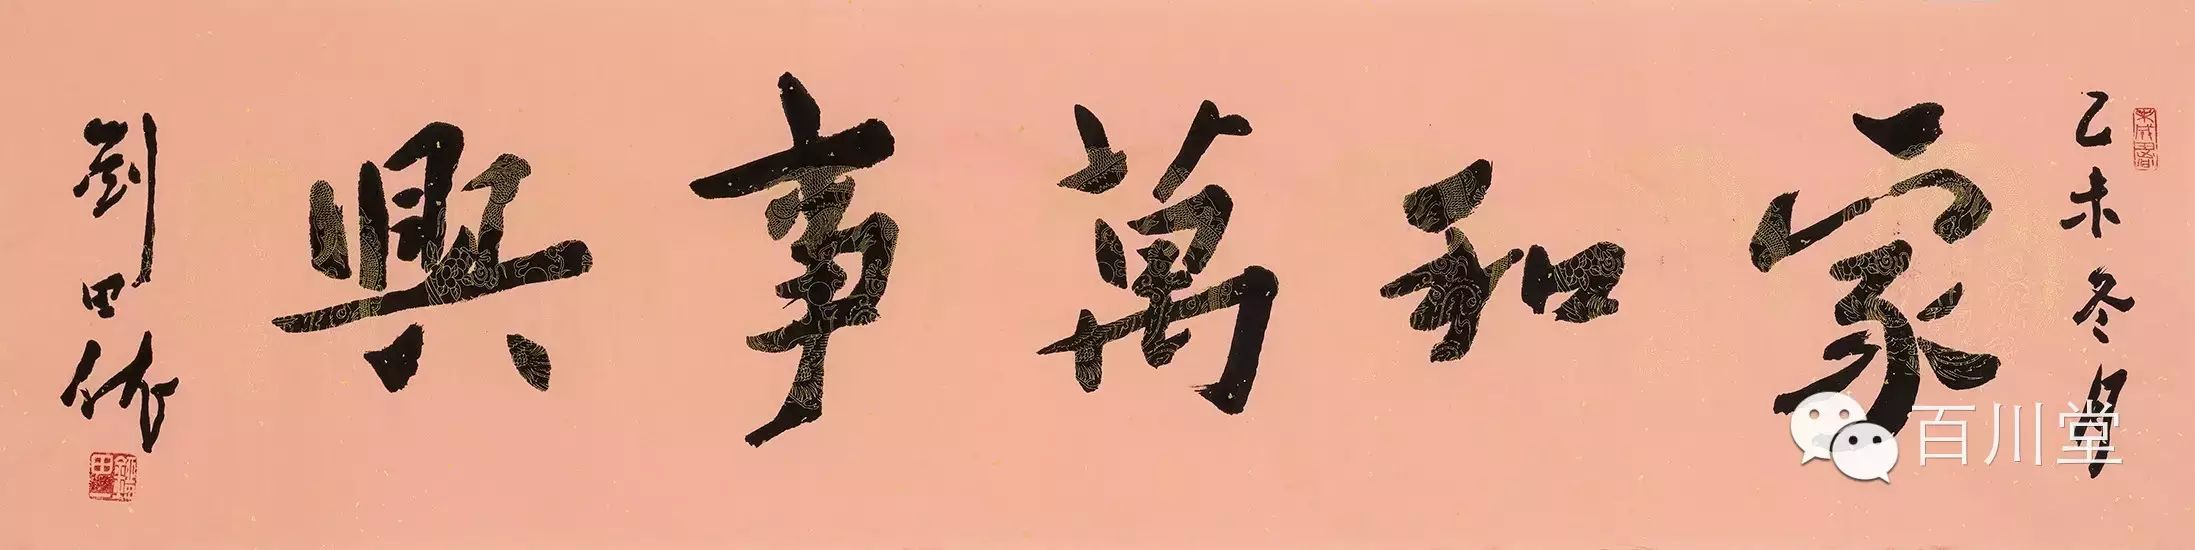 乙未冬月
家和萬事興
劉田依
百川堂